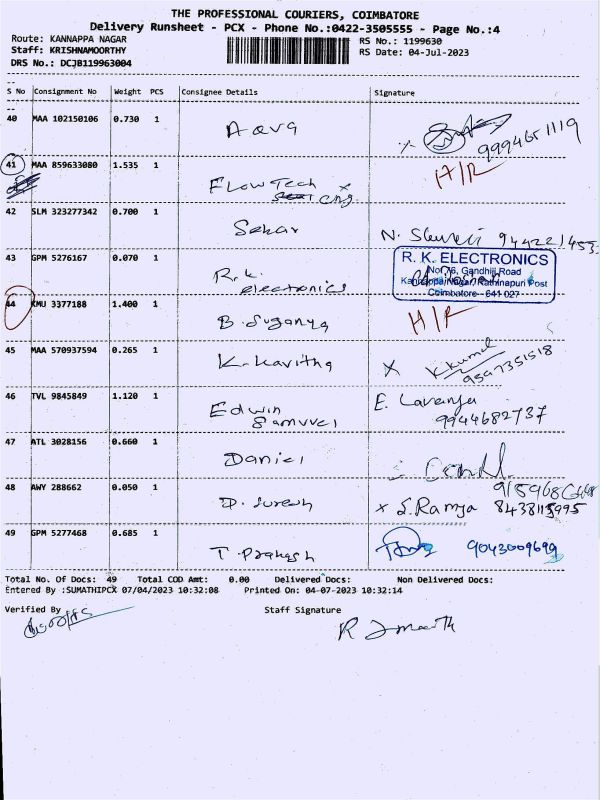 THE PROFESSIONAL COURIERS, COIMBATORE
Delivery Runsheet - PCX - Phone No.:0422-3505555 - Page No.:4
Route: KANNAPPA NAGAR
RS No.: 1199630
Staff: KRISHNAMOORTHY
RS Date: 04-Jul-2023
DRS No.: DCJB119963004
S No Consignment No Weight PCS Consignee Details Signature
40 MAA 102150106 0.730 1 Aava
9994651119
41 MAA 859633080 1.535 1 Flow Tech eng. H/R
42 SLM 323277342 0.700 1 Sekar
43 GPM 5276167 0.070 1 R.K. electronics
R. K. ELECTRONICS
No. 76, Gandhiji Road
Kannappa Nagar, Rathinapuri Post
Coimbatore - 641 027
44 KMU 3377188 1.400 1 B. Suganya H/R
45 MAA 570937594 0.265 1 K. Kavitha X K. Kumal
9597351518
46 TVL 9845849 1.120 1 Edwin Samuvel E. Lavanya
9944682737
47 ATL 3028156 0.660 1 Daniel
48 AWY 288662 0.050 1 D. Suresh x S. Ramya 8438115995
49 GPM 5277468 0.685 1 T. Prakash 9043009699
Total No. Of Docs: 49 Total COD Amt: 0.00 Delivered Docs: Non Delivered Docs:
Entered By :SUMATHIPCX 07/04/2023 10:32:08 Printed On: 04-07-2023 10:32:14
Verified By Staff Signature